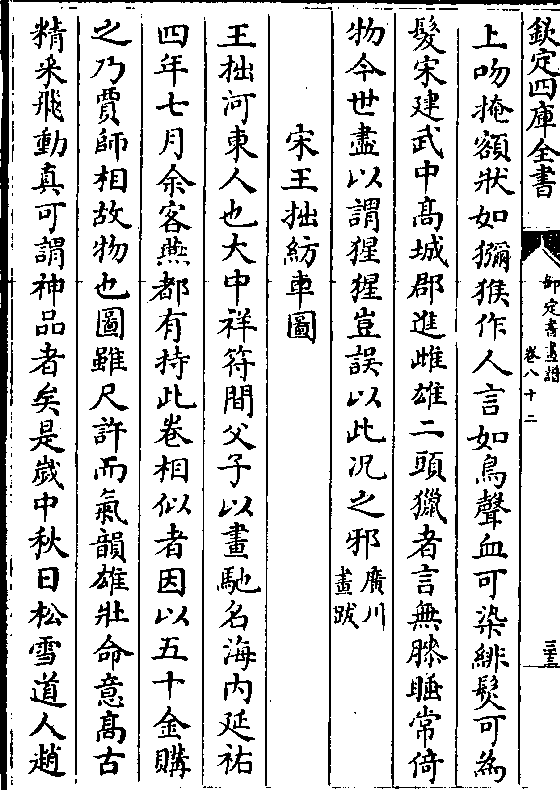 欽定四庫全書
御定書畫譜
卷八十二
三十三
上吻掩額狀如獼猴作人言如鳥聲血可染緋髮可為
髮宋建武中髙城郡進雌雄二頭獵者言無膝睡常倚
物今世盡以謂猩猩豈誤以此况之邪廣川畫跋
宋王拙紡車圖
王拙河東人也大中祥符間父子以畫馳名海内延祐
四年七月余客燕都有持此卷相似者因以五十金購
之乃賈師相故物也圖雖尺許而氣韻雄壯命意髙古
精采飛動真可謂神品者矣是嵗中秋日松雪道人趙